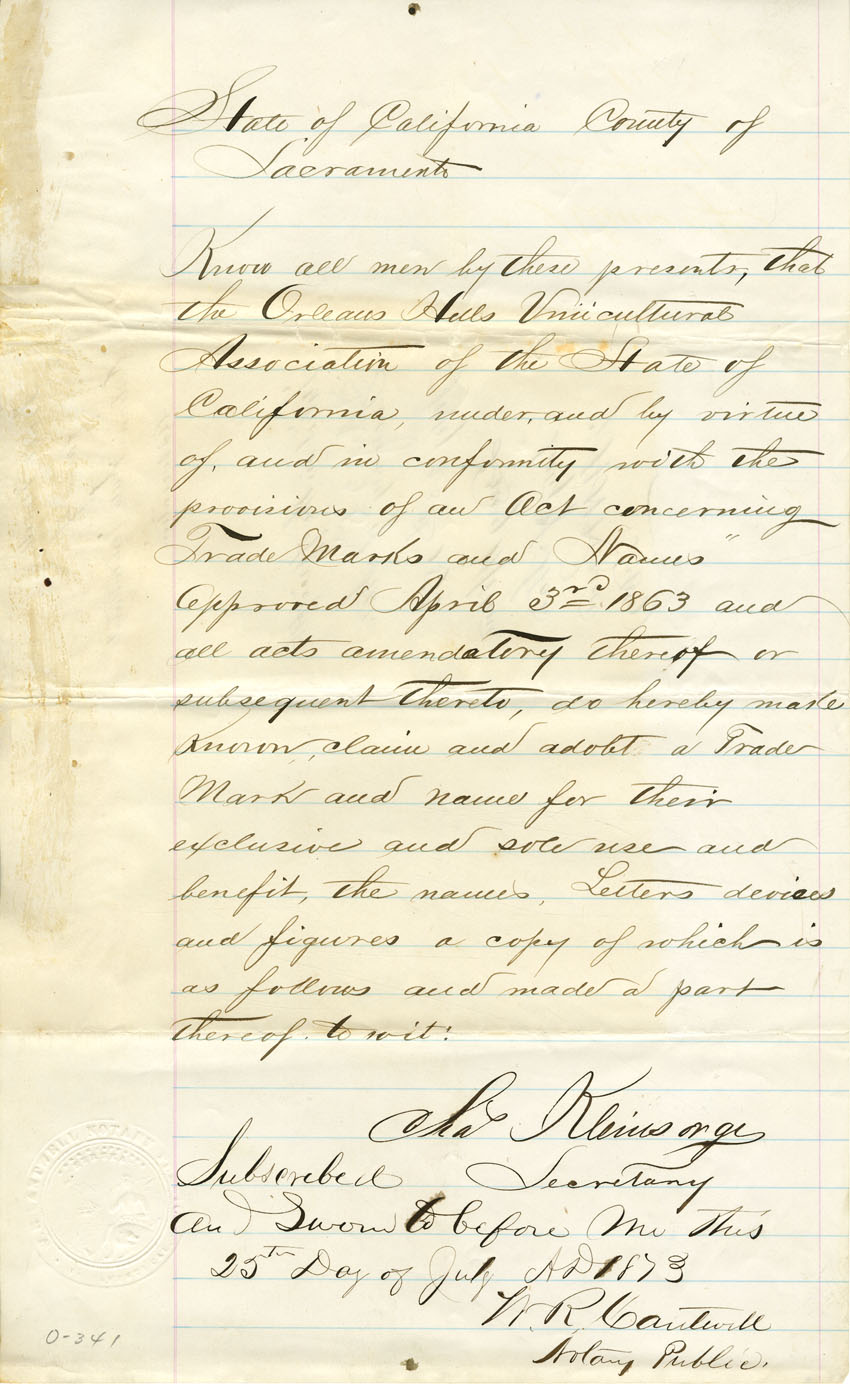 State of California County of
Sacramento
Know all men by these presents, that
the Orleans Hills Vinicultural
Association of the State of
California, under, and by virtue
of, and in conformity with the
provisions of an Act concerning
Trade Marks and Names"
Approved April 3rd 1863 and
all acts amendatory thereof or
subsequent thereto, do hereby make
known, claim and adopt a Trade
Mark and name for their
exclusive and sole use and
benefit, the names, Letters devices
and figures a copy of which is
as follows and made a part
thereof. to wit:
Chas Kleinsorge
Subscribed Secretary
and Sworn to before me this
25th Day of July AD 1873
W. R. Cantwell
Notary Public.
CANTWELL NOTARY
0-341